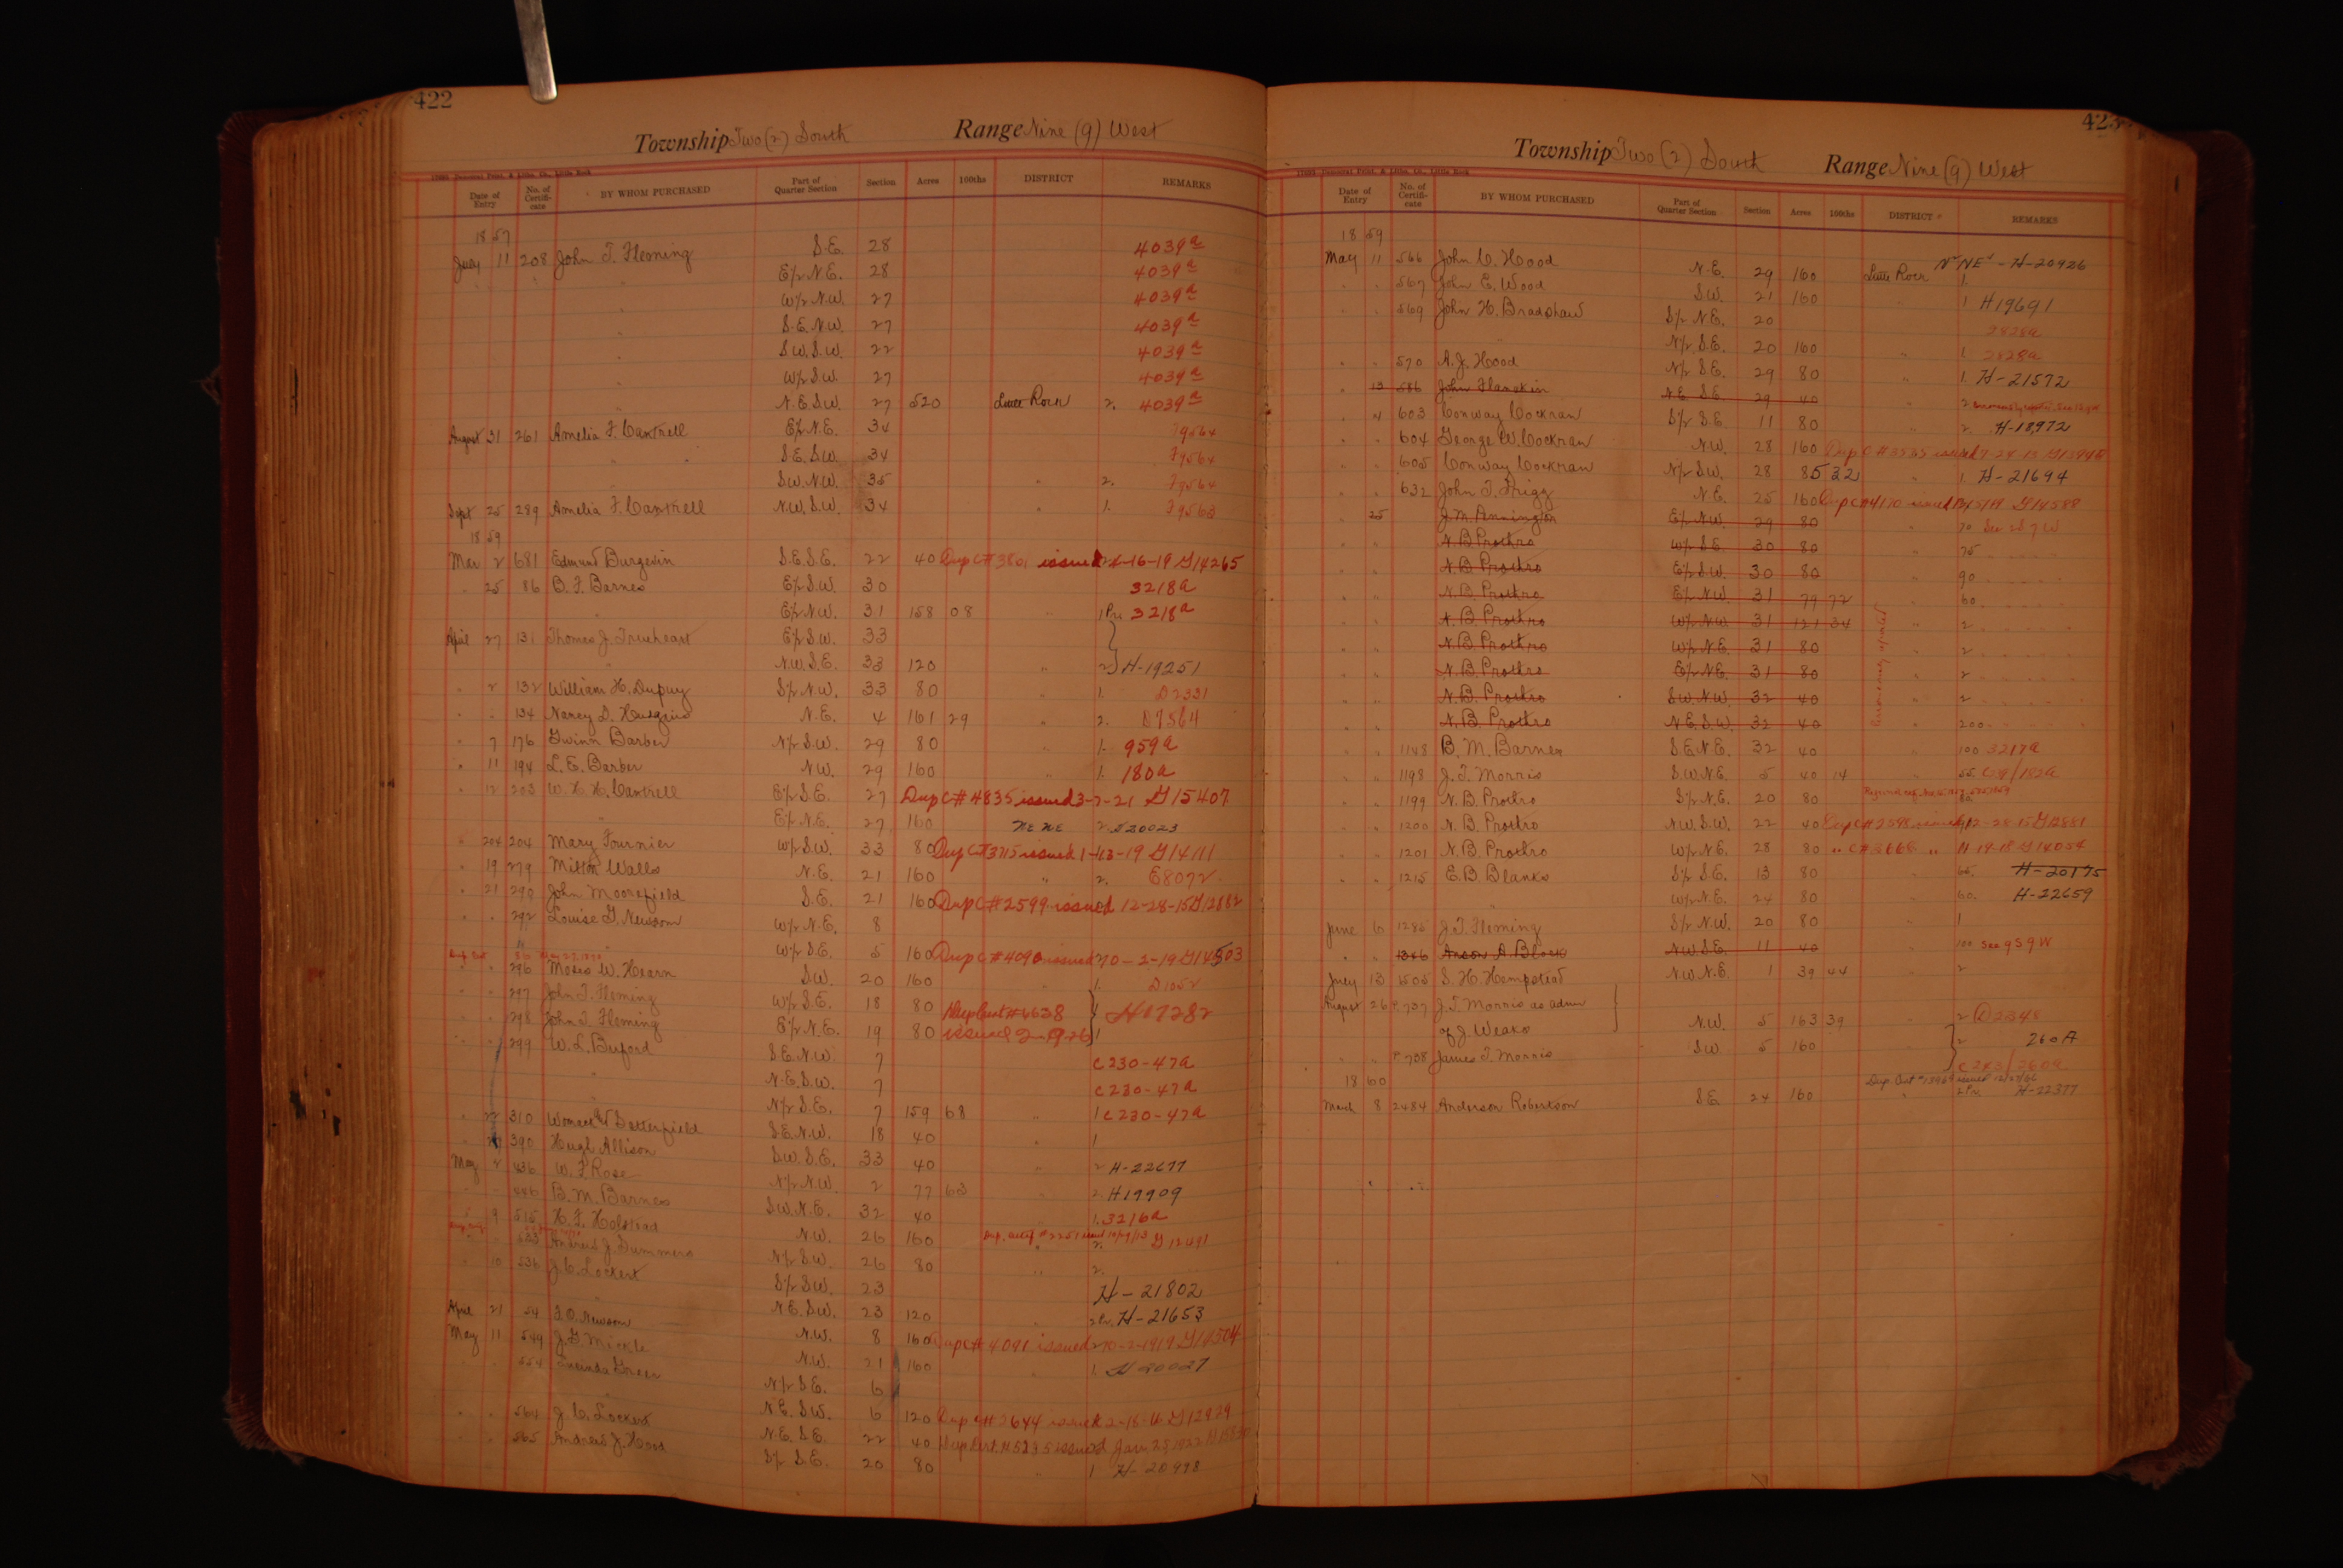 422
Township Two (2) South Range Nine (9) West
Date of Entry No. of Certifi-cate BY WHOM PURCHASED Part of Quarter Section Section Acres 100ths DISTRICT REMARKS
1857
July 11 208 John T. Fleming S.E. 28 4039a
" E½ N.E. 28 4039a
" W½ N.W. 27 4039a
" S.E. N.W. 27 4039a
" S.W. S.W. 22 4039a
" W½ S.W. 27 4039a
" N.E. S.W. 27 520 Little Rock 2. 4039a
August 31 261 Amelia F. Cantrell E½ N.E. 34 F9564
" S.E. S.W. 34 F9564
" S.W. N.W. 35 " 2. F9564
Sept 25 289 Amelia F. Cantrell N.W. S.W. 34 " 1. F9563
1859
Mar 2 681 Edmund Burgevin S.E. S.E. 22 40 Dup C# 3801 issued 2-16-19 G14265
" 25 86 B. F. Barnes E½ S.W. 30 3218a
" E½ N.W. 31 158 08 " 1 Pr. 3218a
April 27 131 Thomas J. Trueheart E½ S.W. 33
" N.W. S.E. 33 120 " 2. H-19251
" 2 132 William H. Dupuy S½ N.W. 33 80 " 1. D2331
" " 134 Nancy D. Hudgins N.E. 4 161 29 " 2. D7564
" 7 176 Gwinn Barber N½ S.W. 29 80 " 1. 959a
" 11 194 L. E. Barber N.W. 29 160 " 1. 180a
" 12 203 W. H. H. Cantrell E½ S.E. 27 Dup C# 4835 issued 3-7-21 G15407
" E½ N.E. 27 160 NE NE 2. H20023
" 204 204 Mary Fournier W½ S.W. 33 80 Dup C# 3715 issued 1-13-19 G14111
" 19 279 Milton Walls N.E. 21 160 " 2. E8072
" 21 290 John Moorefield S.E. 21 160 Dup C# 2599 issued 12-28-15 G12882
" " 292 Louise G. Newsom W½ N.E. 8
" W½ S.E. 5 160 Dup C# 4090 issued 10-2-19 G14503
" " 296 Moses W. Hearn S.W. 20 160 " 1. D1052
" " 297 John T. Fleming W½ S.E. 18 80 Dup Cert # 6638 1 H17282
" " 298 John T. Fleming E½ N.E. 19 80 issued 2-9-26 1
" " 299 W. L. Buford S.E. N.W. 7 C230-47a
" N.E. S.W. 7 C230-47a
N½ S.E. 7 159 68 " 1 C230-47a
" 22 310 Womack Satterfield S.E. N.W. 18 40 " 1
390 Hugh Allison S.W. S.E. 33 40 " 2 H-22677
May 2 436 W. F. Rose N½ N.W. 2 77 63 " 2. H17909
446 B. M. Barnes S.W. N.E. 32 40 1. 3216a
" 9 515 H. F. Holstead N.W. 26 160 Dup. Certif. #2251 issued 10/9/13 2. G12491
533 Andrew J. Summers N½ S.W. 26 80 " 2.
" 10 536 J. C. Lockert S½ S.W. 23 H-21802
" N.E. S.W. 23 120 2 Pr. H-21653
April 21 54 J. O. Newsom N.W. 8 160 Dup C# 4091 issued 10-2-1919 G14504
May 11 549 J. G. Mickle N.W. 21 160 " 1. H20027
" " 554 Lucinda Green N½ S.E. 6
" N.E. S.W. 6 120 Dup C# 2644 issued 2-18-16 G12929
" " 564 J. C. Lockert N.E. S.E. 22 40 Dup Cert. # 5235 issued Jan. 25, 1922
" " 565 Andrew J. Hood S½ S.E. 20 80 " 1 H-20998
423
Township Two (2) South Range Nine (9) West
Date of Entry No. of Certifi-cate BY WHOM PURCHASED Part of Quarter Section Section Acres 100ths DISTRICT REMARKS
1859
May 11 566 John C. Hood N.E. 29 160 Little Rock 1. N½NE¼-H-20926
" " 567 John E. Wood S.W. 21 160 " 1 H19691
" " 569 John H. Bradshaw S½ N.E. 20 2828a
" N½ S.E. 20 160 " 1. 2828a
" " 570 A. J. Hood N½ S.E. 29 80 " 1. H-21572
" 13 586 John Hanskin N.E. S.E. 29 40 " 2
" " 603 Conway Cockran S½ S.E. 11 80 " 2. H-18972
" " 604 George W. Cockran N.W. 28 160
" " 605 Conway Cockran N½ S.W. 28 85 32 " 1. H-21694
" " 632 John T. Trigg N.E. 25 160 Dup C# 4170 issued G14588
" 25 J. M. Pennington E½ N.W. 29 80 " 70 See 2S 7W
" " N. B. Prothro W½ S.E. 30 80 " 75
" " N. B. Prothro E½ S.W. 30 80 " 90
" " N. B. Prothro E½ N.W. 31 79 72 " 60
" " N. B. Prothro W½ N.W. 31 121 34 " 2
" " N. B. Prothro W½ N.E. 31 80 " 2
" " N. B. Prothro E½ N.E. 31 80 " 2
" " N. B. Prothro S.W. N.W. 32 40 " 2
" " N. B. Prothro N.E. S.W. 32 40 " 200
" " 1148 B. M. Barnes S.E. N.E. 32 40 " 100 3217a
" " 1198 J. T. Morris S.W. N.E. 5 40 14 " 55
" " 1199 N. B. Prothro S½ N.E. 20 80
" " 1200 N. B. Prothro N.W. S.W. 22 40 Dup C# 2598 issued 12-28-15 G12881
" " 1201 N. B. Prothro W½ N.E. 28 80 " C# 3668 " 11-19-18 G14054
" " 1215 E. B. Blanks S½ S.E. 13 80 " 65. H-20175
" W½ N.E. 24 80 " 60. H-22659
June 6 1285 J. T. Fleming S½ N.W. 20 80 " 1
" " 1346 Anson A. Block N.W. S.E. 11 40 " 100 See 9S9W
July 13 1505 S. H. Hempstead N.W. N.E. 1 39 44 " 2
August 26 P.737 J. T. Morris as admr
of J Weaks N.W. 5 163 39 " 2 D2348
" " P.738 James T. Morris S.W. 5 160 " 2 260A
1860
March 8 2484 Anderson Robertson S.E. 24 160 " 2 Pr. H-22377